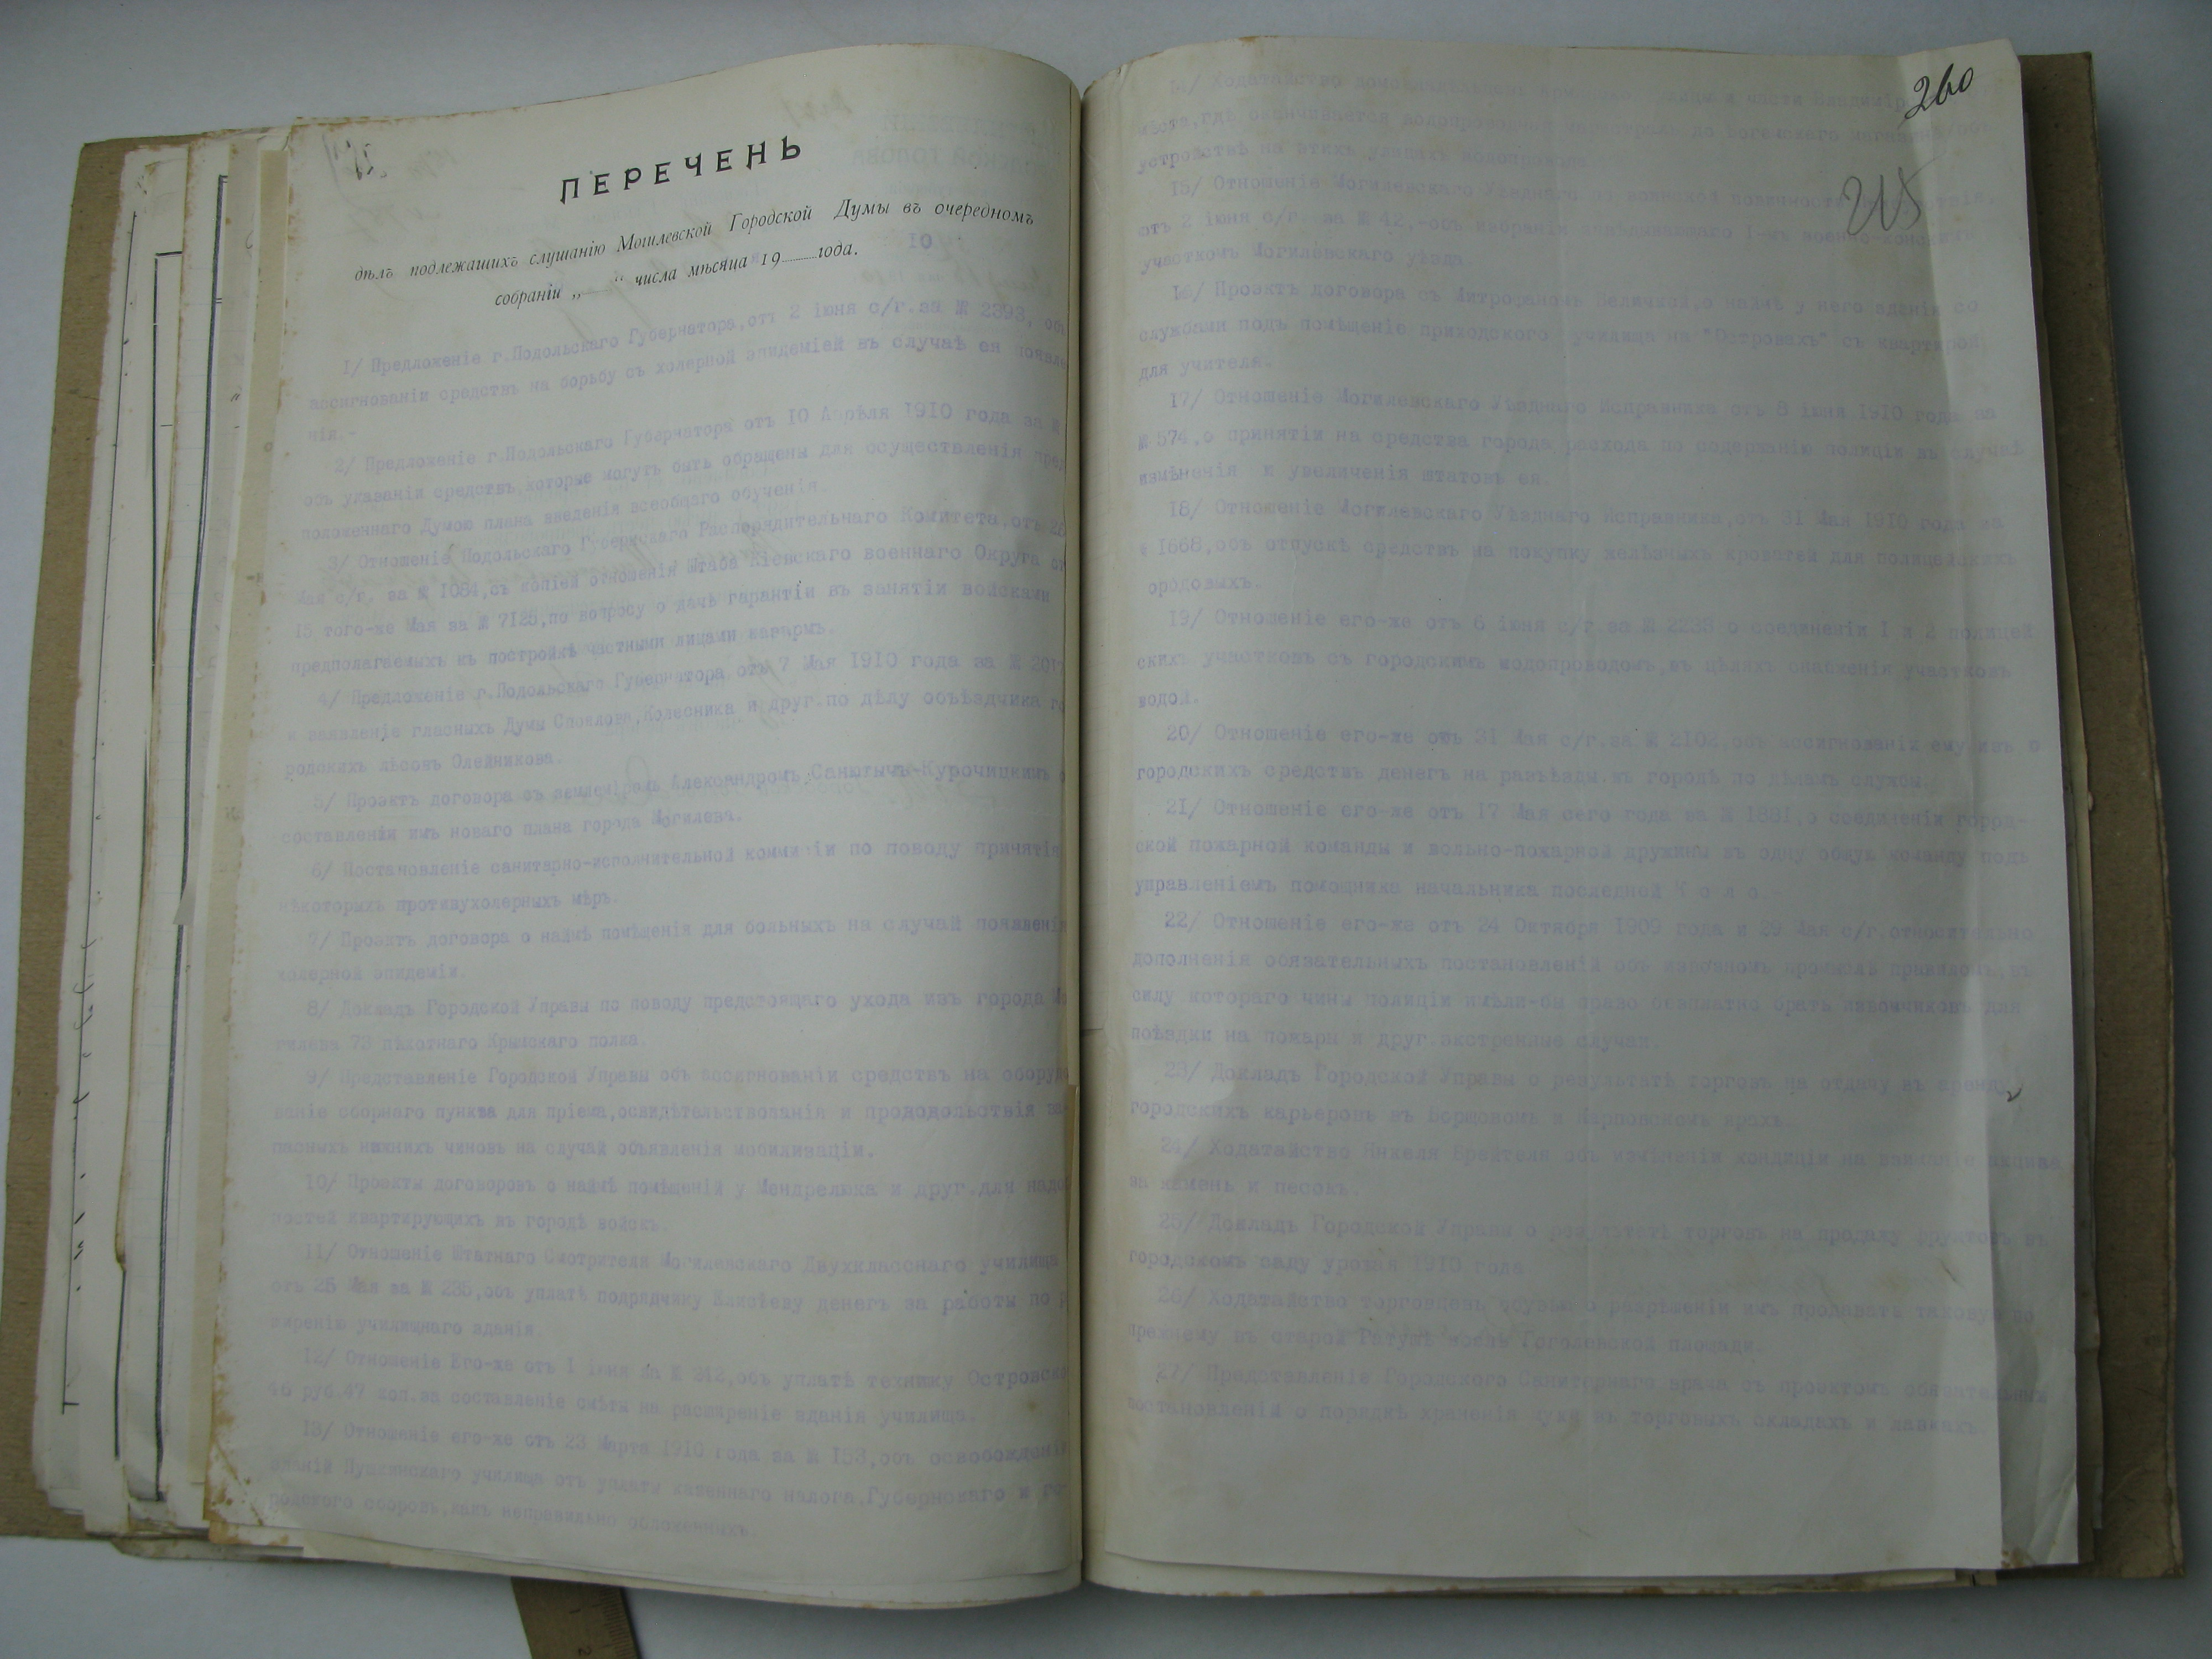 ПЕРЕЧЕНЬ
дѣлъ подлежащихъ слушанію Могилевской Городской Думы въ очередномъ
собраніи „ “ числа мѣсяца 19 года.
1/ Предложеніе г.Подольскаго Губернатора,отъ 2 іюня с/г.за № 2393, объ
ассигнованіи средствъ на борьбу съ холерной эпидеміей въ случаѣ ея появле
нія.-
2/ Предложеніе г.Подольскаго Губернатора отъ 10 Апрѣля 1910 года за №
объ указаніи средствъ,которые могутъ быть обращены для осуществленія пред
положеннаго Думою плана введенія всеобщаго обученія.
3/ Отношеніе Подольскаго Губернскаго Распорядительнаго Комитета,отъ
Мая с/г. за № 1084,съ копіей отношенія Штаба Кіевскаго военнаго Округа
15 того-же Мая за № 7125,по вопросу о дачѣ гарантіи въ занятіи войсками
предполагаемыхъ къ постройкѣ частными лицами казармъ.
4/ Предложеніе г.Подольскаго Губернатора отъ 7 Мая 1910 года за №
и заявленіе гласныхъ Думы Самилова,Колесника и друг.по дѣлу объѣздчика го
родскихъ лѣсовъ Олейникова.
5/ Проэктъ договора съ землемѣромъ Александромъ Санытычъ-Курочицкимъ
составленіи имъ новаго плана города Могилева.
6/ Постановленіе санитарно-исполнительной коммисіи по поводу принятія
нѣкоторыхъ противухолерныхъ мѣръ.
7/ Проэктъ договора о наймѣ помѣщенія для больныхъ на случай появленія
холерной эпидеміи.
8/ Докладъ Городской Управы по поводу предстоящаго ухода изъ города Мо
гилева 73 пѣхотнаго Крымскаго полка.
9/ Представленіе Городской Управы объ ассигнованіи средствъ на оборудо
ваніе сборнаго пункта для пріема,освидѣтельствованія и продовольствія за-
пасныхъ нижнихъ чиновъ на случай объявленія мобилизаціи.
10/ Проэкты договоровъ о наймѣ помѣщеній у Мендрелюка и друг.для надоб
ностей квартирующихъ въ городѣ войскъ.
11/ Отношеніе Штатнаго Смотрителя Могилевскаго Двухкласснаго училища
отъ 25 Мая за № 235,объ уплатѣ подрядчику Алксѣеву денегъ за работы по
ширенію училищнаго зданія.
12/ Отношеніе Его-же отъ 1 іюня за № 242,объ уплатѣ технику Островско
46 руб.47 коп.за составленіе смѣты на расширеніе зданія училища.
13/ Отношеніе его-же отъ 23 Марта 1910 года за № 153,объ освобожденіи
зданій Пушкинскаго училища отъ уплаты казеннаго налога,Губернскаго и го-
родского сборовъ,какъ неправильно обложенныхъ.
260
215
14/ Ходатайство домовладѣльцевъ
мѣста,гдѣ оканчивается водопроводная магистраль до
устройствѣ на этихъ улицахъ водопровода.
15/ Отношеніе Могилевскаго Уѣзднаго по воинской повинности Присутствія,
отъ 2 іюня с/г. за № 42,-объ избраніи завѣдывающаго 1-мъ военно-конскимъ
участкомъ Могилевскаго уѣзда.
16/ Проэктъ договора съ Митрофаномъ Величкой,о наймѣ у него зданій со
службами подъ помѣщеніе приходского училища на "Островахъ" съ квартирой
для учителя.
17/ Отношеніе Могилевскаго Уѣзднаго Исправника отъ 8 іюня 1910 года за
№ 574,о принятіи на средства города расхода по содержанію полиціи въ случаѣ
измѣненія и увеличенія штатовъ ея.
18/ Отношеніе Могилевскаго Уѣзднаго Исправника,отъ 31 Мая 1910 года за
№ 1668,объ отпускѣ средствъ на покупку желѣзныхъ кроватей для полицейскихъ
ородовыхъ.
19/ Отношеніе его-же отъ 6 іюня с/г.за № 2238 о соединеніи 1 и 2 полицей
скихъ участковъ съ городскимъ водопроводомъ,въ цѣляхъ снабженія участковъ
водой.
20/ Отношеніе его-же отъ 31 Мая с/г.за № 2102,объ ассигнованіи ему изъ
городскихъ средствъ денегъ на разъѣзды въ городѣ по дѣламъ службы.
21/ Отношеніе его-же отъ 17 Мая сего года за № 1881,о соединеніи город-
ской пожарной команды и вольно-пожарной дружины въ одну общую команду подъ
управленіемъ помощника начальника послѣдней К о л о -
22/ Отношеніе его-же отъ 24 Октября 1909 года и 29 Мая с/г.относительно
дополненія обязательныхъ постановленій объ извозномъ промыслѣ правиломъ,въ
силу котораго чины полиціи имѣли-бы право безплатно брать извозчиковъ для
поѣздки на пожары и друг.экстренные случаи.
23/ Докладъ Городской Управы о результатѣ торговъ на отдачу въ аренду
городскихъ карьеровъ въ Борщовомъ и Карповскомъ ярахъ.
24/ Ходатайство Янкеля Ерайтеля объ измѣненіи кондицій на взиманіе акциза
за камень и песокъ.
25/ Докладъ Городской Управы о результатѣ торговъ на продажу фруктовъ въ
городскомъ саду урожая 1910 года
26/ Ходатайство торговцевъ обувью о разрѣшеніи имъ продавать таковую по
прежнему въ старой Ратушѣ возлѣ Гоголевской площади.
27/ Представленіе Городского Санитарнаго врача съ проэктомъ обязательныхъ
постановленій о порядкѣ храненія муки въ торговыхъ складахъ и лавкахъ.